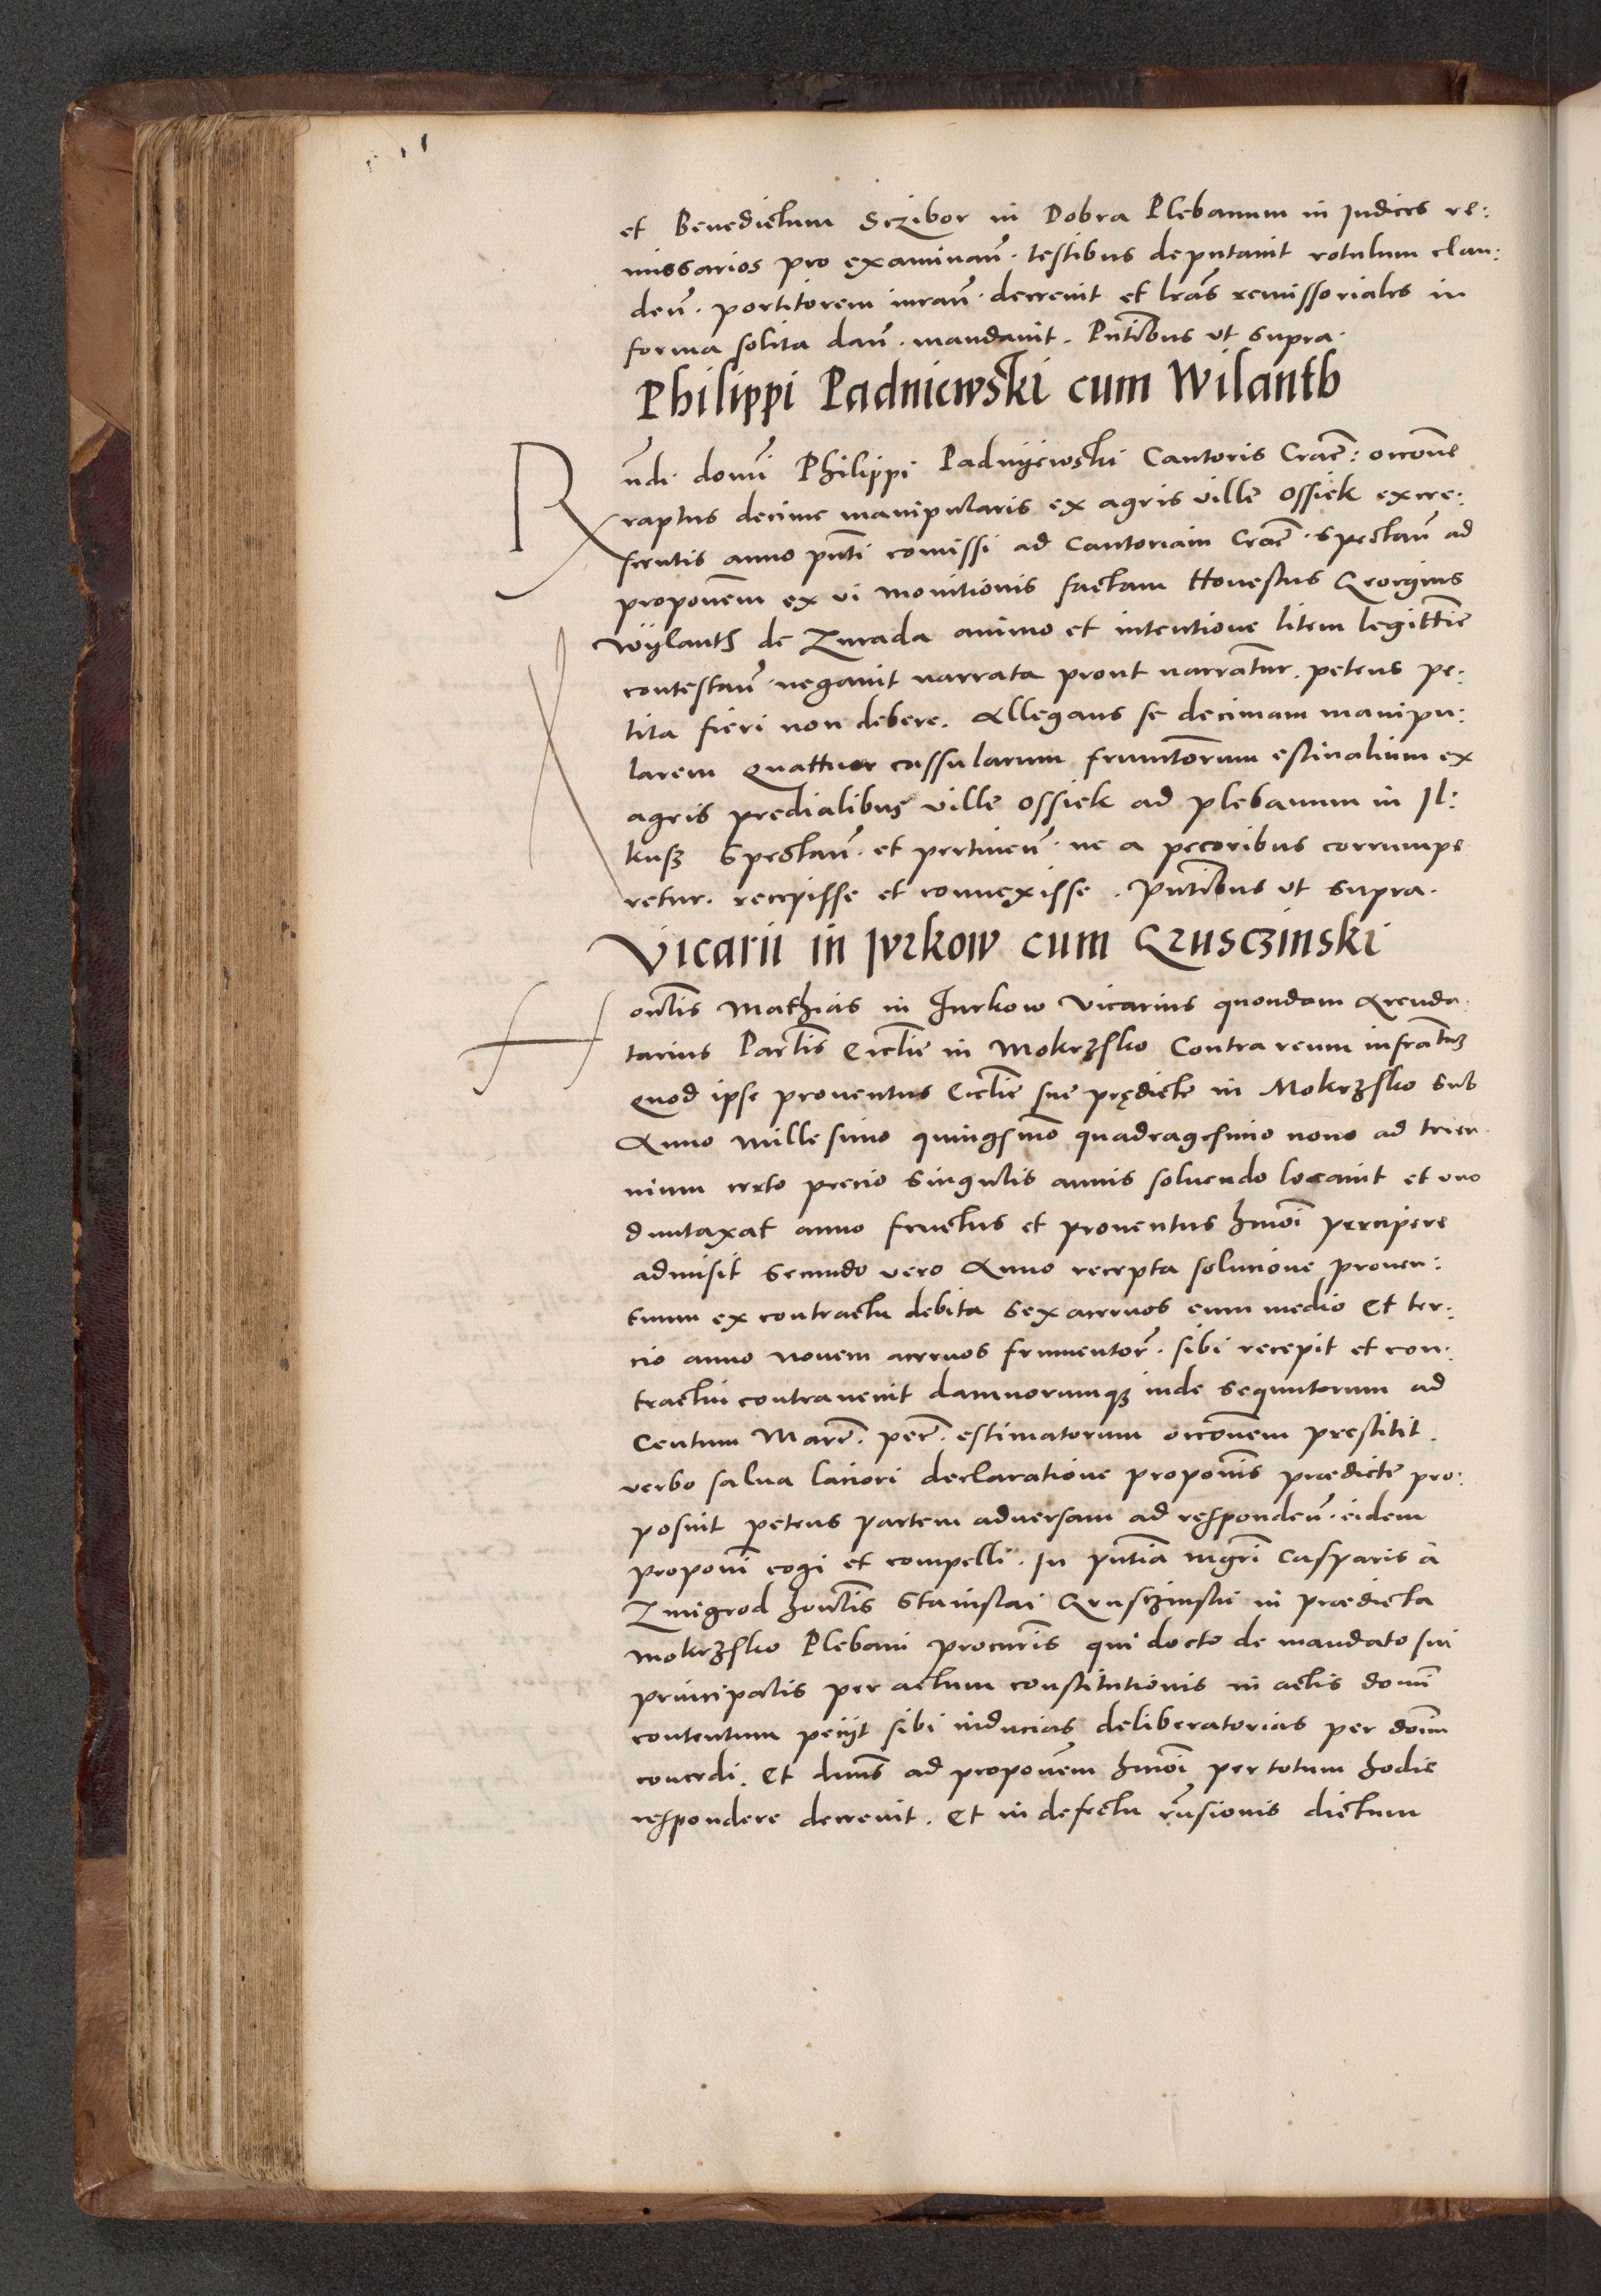 et Benedictum Sczibor in Dobra Plebanum in Judices re:
missarios pro examinan̄. testibus deputauit rotulum clau:
den̄. portitorem iuran̄. decreuit et lr̄as remissoriales in
forma solita dan̄. mandauit. Pn̄tibus vt supra.
Philippi Padniewski cum Wilanth
Rn̄di. domī Philippi Padnyewski Cantoris Crac̄: occōne
raptus decime manipularis ex agris ville Ossiek excre:
scentis anno pn̄ti comissi ad Cantoriam Crac̄. spectan̄ ad
propōnem ex vi monitionis factam Honestus Georgius
Wylanth de Zurada animo et intentione litem legittīe
contestan̄. negauit narrata prout narrāntur. petens pe:
tita fieri non debere. Allegans se decimam manipu:
larem quattuor cassularum frumentōrum estiualium ex
agris predialibus ville Ossiek ad plebanum in Il:
kusz spectan̄. et pertinen̄. ne a pecoribus corrumpe
retur. recepisse et conuexisse. Pn̄tibus vt supra.
Vicarii in Jurkow cum Gruszinski
Honōlis Mathias in Jurkow Vicarius quondam Arenda
tarius Parōlis Ecclīe in Mokrzsko Contra reum infrātuz
quod ipse prouentus Ecclīe sue prędicte in Mokrzsko sub
Anno millesimo quingēsimo quadragesimo nono ad trien
nium certo precio singulis annis soluendo locauit et vno
duntaxat anno fructus et prouentus hmōi percipere
admisit secundo vero Anno recepta solucione prouen:
tuum ex contractu debita sex aceruos cum medio Et ter:
cio anno nouem aceruos frumentor̄. sibi recepit et con:
tractui contrauenit damnorumqz inde sequutorum ad
Centum Marc̄. pec̄. estimatorum occōnem prestitit.
verbo salua laciori declaratione propōnis prædicte pro:
posuit petens partem aduersam ad responden̄. eidem
propōni cogi et compelli. In pn̄tia mgr̄i Casparis a
Zmigrod honōlis Stanislai Gruszinski in prædicta
Mokrzsko Plebani procurōris qui docto de mandato sui
principalis per actum constitutionis in actis domī
contentum peciit sibi inducias deliberatorias per dōm
concedi. Et dn̄us ad propōnem hmōi per totum hodie
respondere decreuit. Et in defectu rn̄sionis dictum